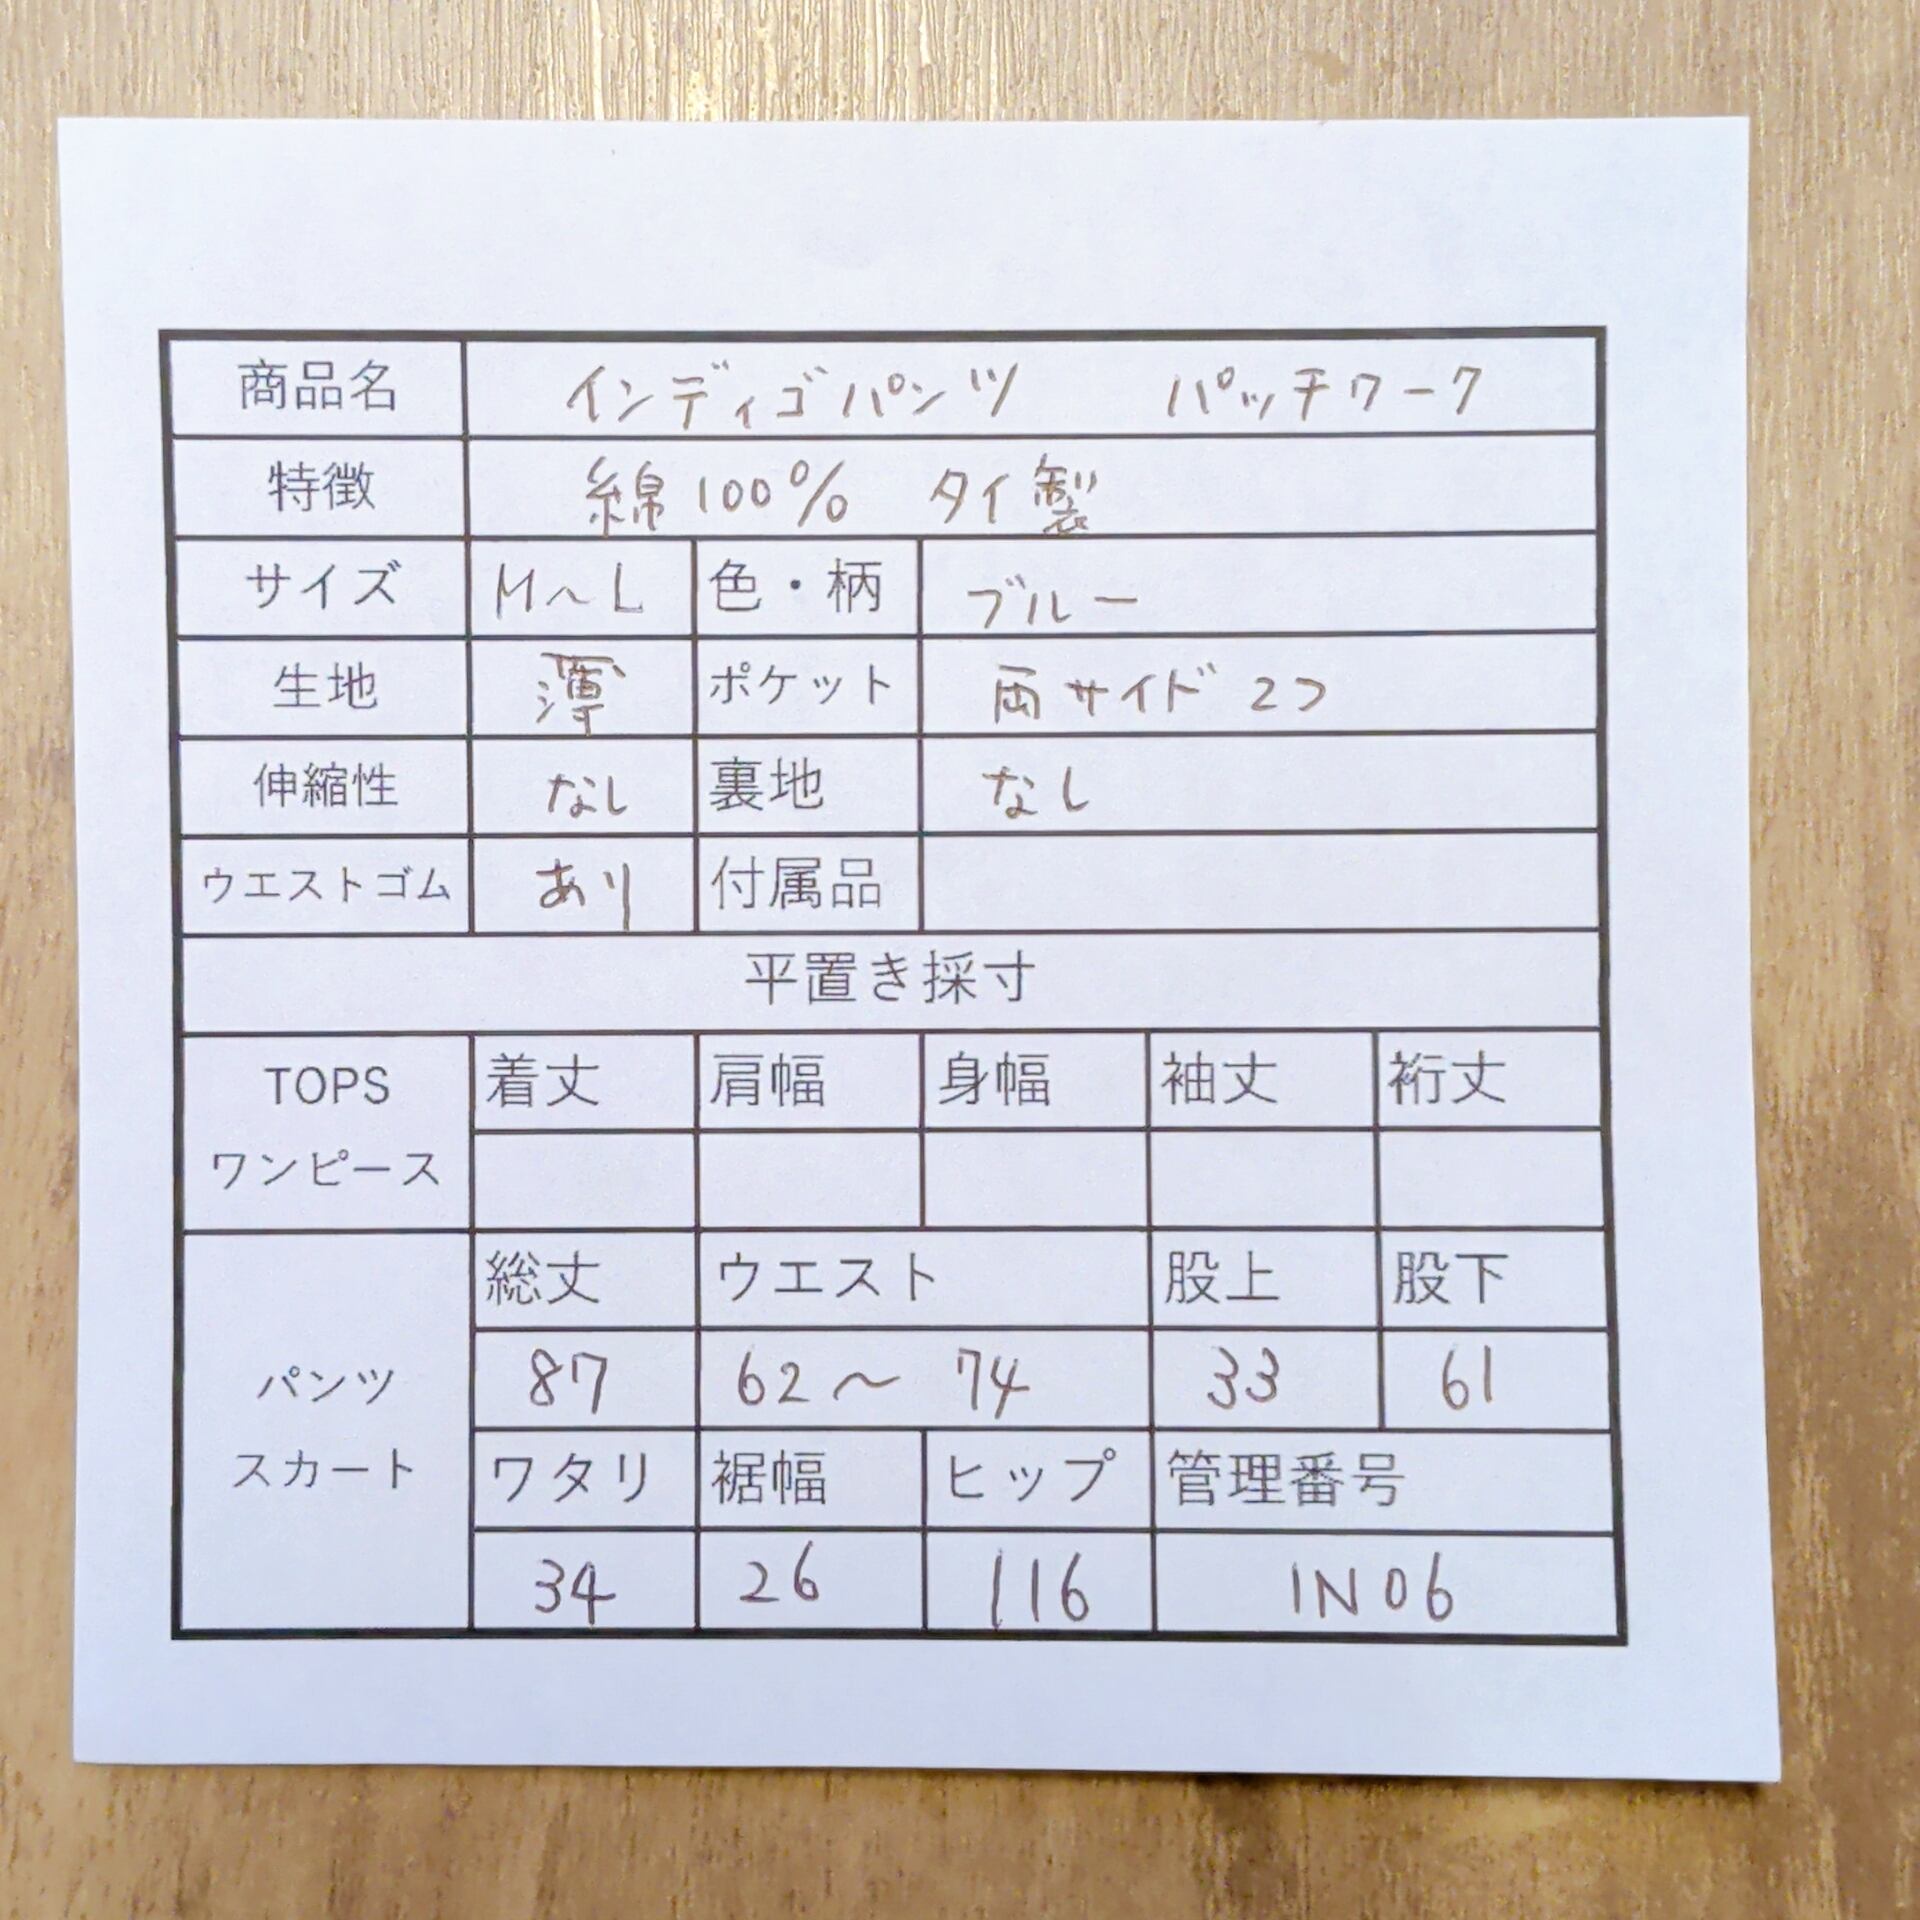 商品名 インディゴパンツ パッチワーク
特徴 綿100% タイ製
サイズ M〜L 色・柄 ブルー
生地 薄 ポケット 両サイド2つ
伸縮性 なし 裏地 なし
ウエストゴム あり 付属品
平置き採寸
TOPS 着丈 肩幅 身幅 袖丈 裄丈
ワンピース
総丈 ウエスト 股上 股下
パンツ 87 62〜74 33 61
スカート ワタリ 裾幅 ヒップ 管理番号
34 26 116 IN06